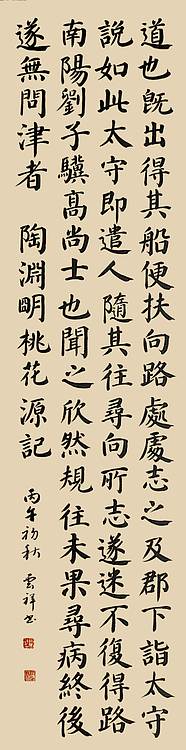 道也既出得其船便扶向路處處志之及郡下詣太守
說如此太守即遣人隨其往尋向所志遂迷不復得路
南陽劉子驥高尚士也聞之欣然規往未果尋病終後
遂無問津者 陶淵明桃花源記
丙午初秋 雲祥书